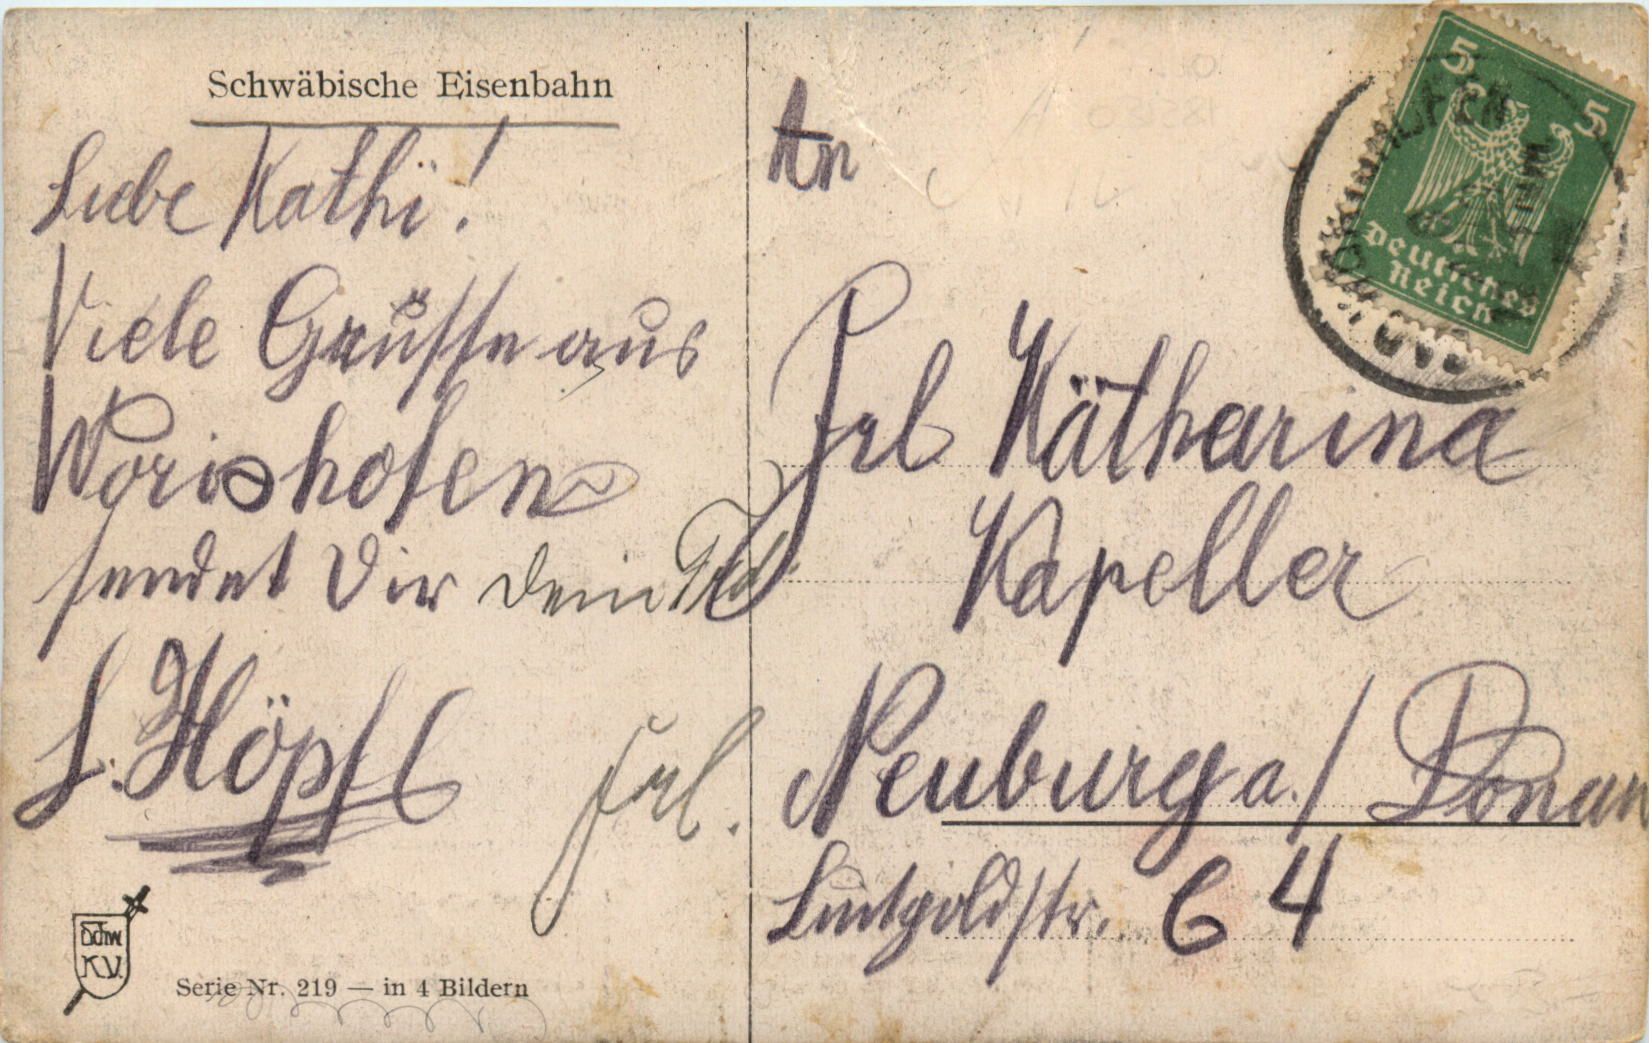 Schwäbische Eisenbahn
Liebe Kathi!
Viele Grüsse aus
Worishofen
sendet Dir dein
L. Höpfl
Frl.
Schw.
K.V.
Serie Nr. 219 — in 4 Bildern
An
Frl Kätharina
Kapeller
Neuburg a./Donau
Luitpoldstr. 64
5
5
Deutsches
Reich